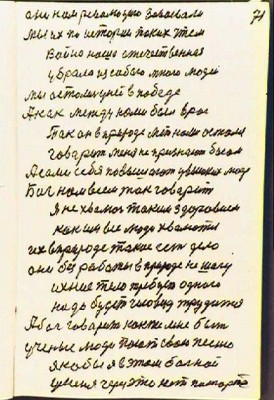 71
они нам революцию завоевали
мы их по истории таких чтем
Война наша отечественная
убрала из собою много людей
мы остались у ней в победе
А как между нами был враг
Так он в природе
говорит меня не признают Богом
А сами себя повышают ученых люде
Бог нам всем так говорит
Я не хвалюсь таким здоровием
как все люди хвалются
их в природе такие есть дело
они без работы в природе не шагу
ихние тело требует одного
надо будет человеку трудится
А Бог говорит как же мне быть
ученые люди поют свою песню
якобы я в этом больной
у меня через это нет паспорта